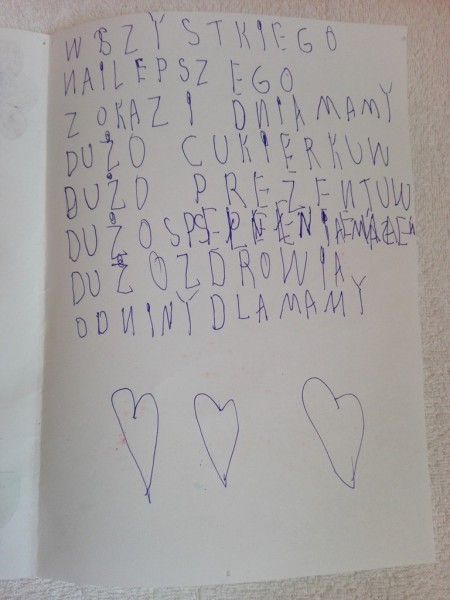 WSZYSTKIEGO
NAJLEPSZEGO
Z OKAZI DNIA MAMY
DUŻO CUKIERKUW
DUŻO PREZENTUW
DUŻO SPEŁNIENIA MAŻEŃ
DUŻO ZDROWIA
OD NINY DLA MAMY